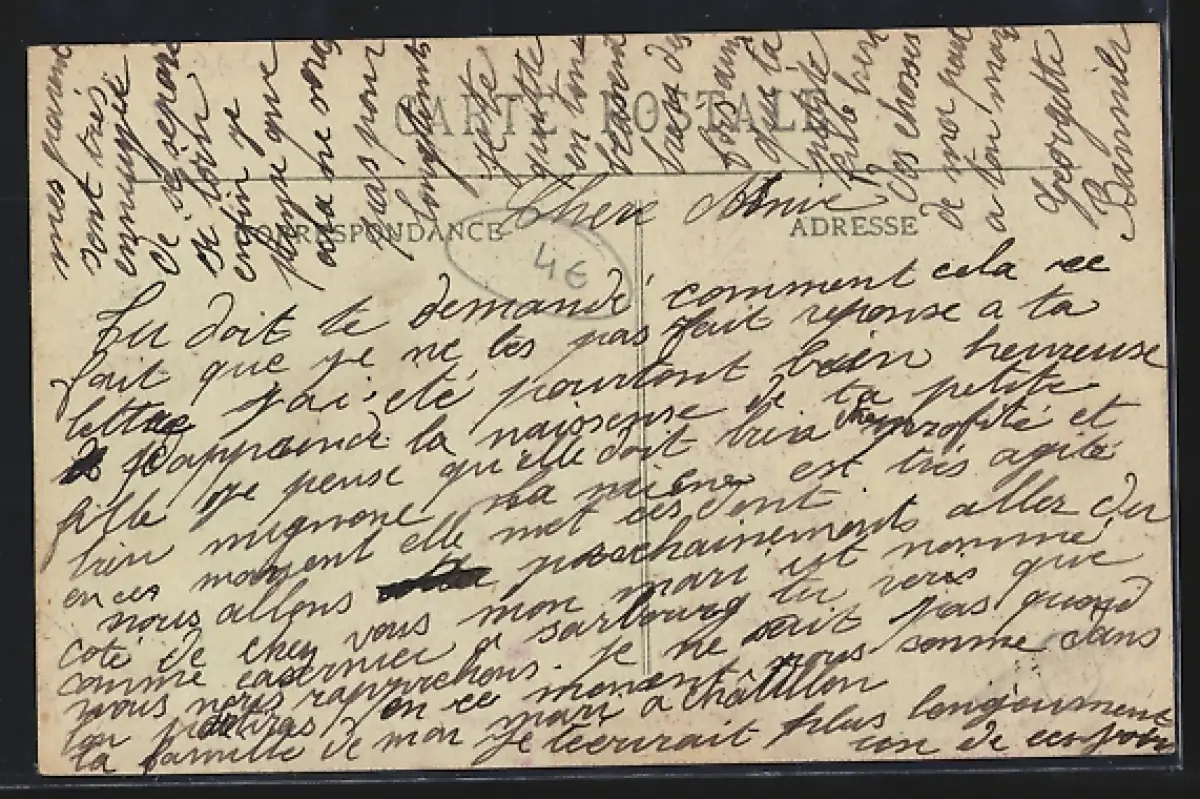 CARTE POSTALE
CORRESPONDANCE
ADRESSE
4€
Chere Amie
Tu doit te demandé comment cela ce
fait que je ne tes pas fait reponse a ta
lettre j'ai été pourtant bien heureuse
d'apprendre la naissense de ta petite
fille je pense qu'elle doit bien profité et
bien mignone la mienne est très agité
en ces moment elle met ces dent
nous allons prochainements aller du
coté de chez vous mon mari est nommé
comme casernier a sarbourg tu verois que
nous nous rapprochons. je ne sait pas quand
on en ce moment nous somme dans
la famille de mon mari a châtillon
je t'ecrirait plus longuement
un de ces jour
mes parents
sont très
ennuyée
de si separé
si loin
enfin je
pense que
cela ne sera
pas pour
longtemps
je te
quitte
en ton
bien des
que la
petite
bien
de mon
a ton mari
Georgette